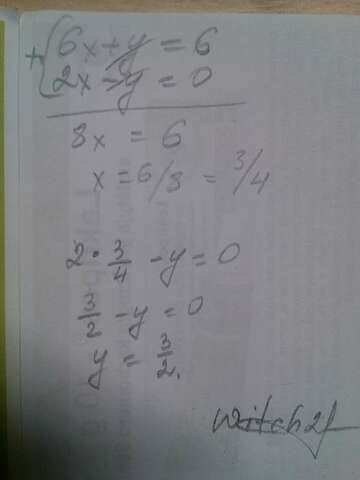 + { 6x + y = 6
2x - y = 0
8x = 6
x = 6/8 = 3/4
2 · 3/4 - y = 0
3/2 - y = 0
y = 3/2.
witch21